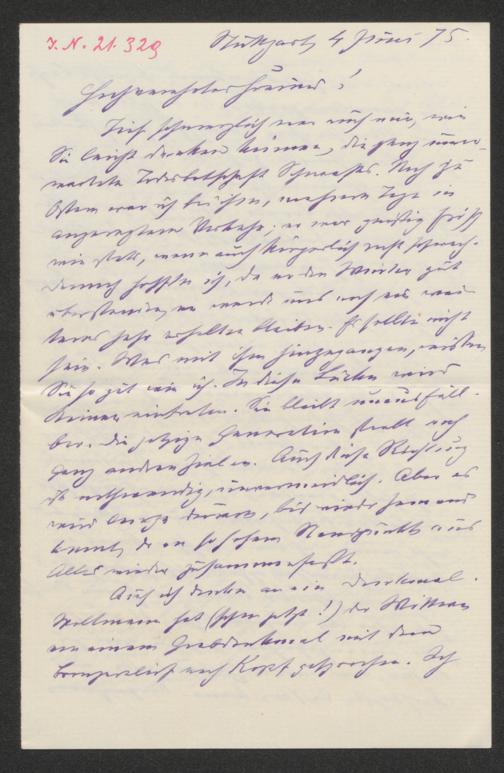 J. N. 21.329
Stuttgart 4 Juni 75.
Hochverehrter Freund!
Tief schmerzlich war auch mir, wie
Sie leicht denken können, die ganz uner-
wartete Todesbotschaft Schnaase's. Noch zu
Ostern war ich bei ihm, mehrere Tage in
angeregtem Verkehr; er war geistig frisch
wie stets, wenn auch körperlich recht schwach.
Dennoch hoffte ich, da er den Winter gut
überstanden, er werde uns noch ein wei-
teres Jahr erhalten bleiben. Es sollte nicht
sein. Was mit ihm hingegangen, wissen
Sie so gut wie ich. In diese Lücke wird
Keiner eintreten. Sie bleibt unausfüll-
bar. Die jetzige Generation strebt nach
ganz andren Zielen. Auch diese Richtung
ist nothwendig, unvermeidlich. Aber es
wird lange dauern, bis wieder Jemand
kommt, der von so hohem Standpunkte aus
Alles wieder zusammenfaßt.
Auch ich denke an ein Denkmal.
Woltmann hat (schon jetzt!) der Wittwe
von einem Grabdenkmal mit dem
Bronzerelief nach Kopf gesprochen. Ich